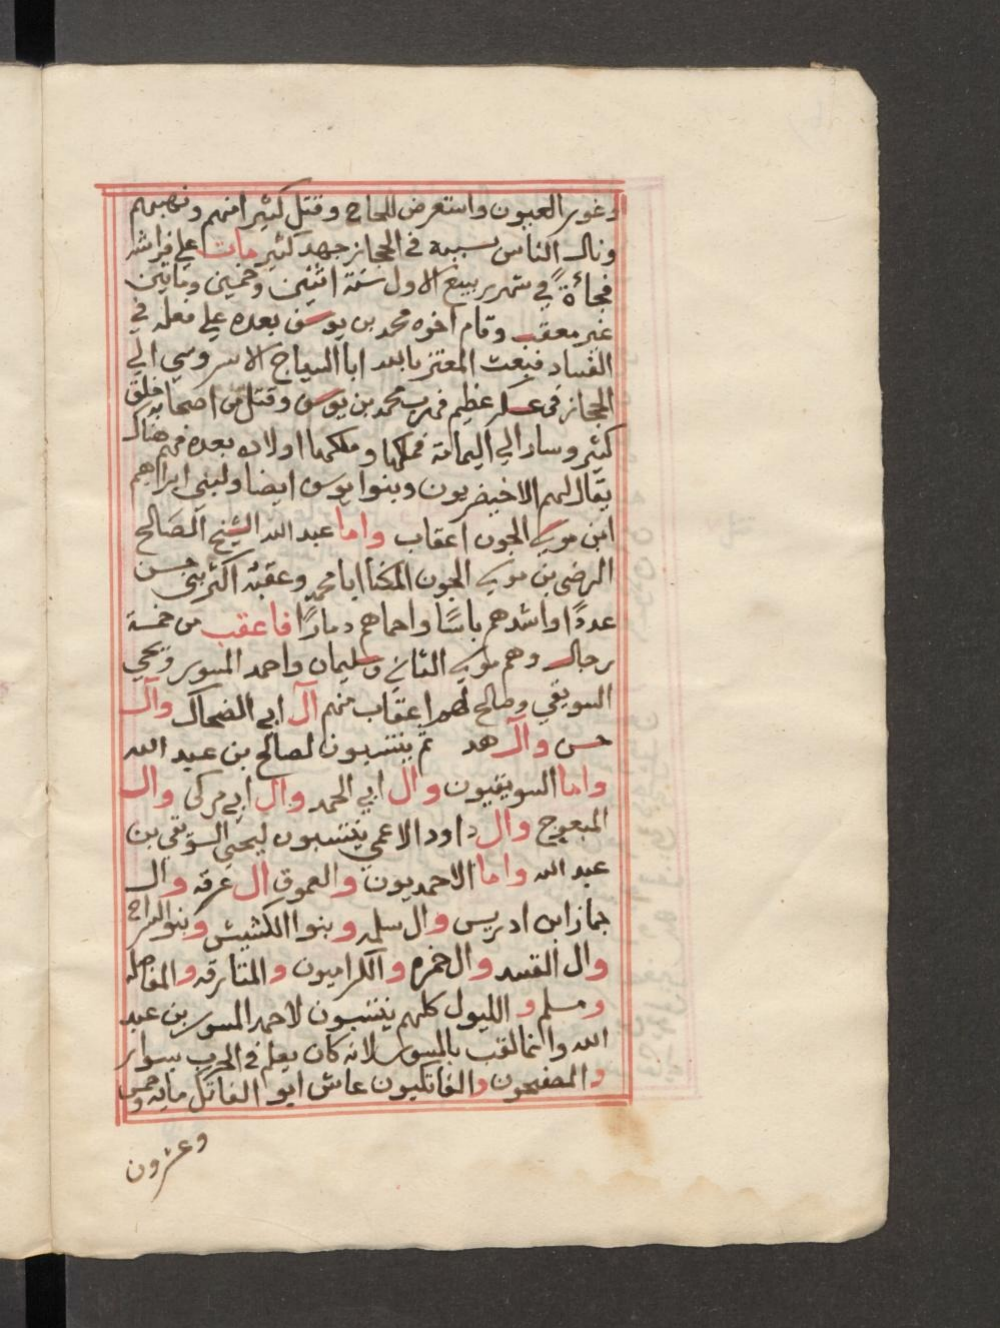 وغور العيون واستعرض للحاج وقتل كثيرا منهم ونهبهم
ونال الناس بسببه في الحجاز جهد كثير مات علي فراشه
فجائةً في شهر ربيع الاول سنة اثنين وخمسين ومايتين
غير معقب وقام اخوه محمد بن يوسف بعده علي فعله في
الفساد فبعث المعتز بالله ابا الساج الاسروسي الي
الحجاز في عسكر عظيم فهرب محمد بن يوسف وقتل من اصحابه خلق
كثير وسار الي اليمامة فملكها وملكها اولاده بعده فهم هناك
يقال لهم الاخيضريون وبنوا يوسف ايضا ولبني ابراهيم
ابن موسي الجون اعقاب واما عبد الله الشيخ الصالح
الرضي بن موسي الجون المكنا ابا محمد وعقبه اكثر بني حسن
عددًا واشدهم باسًا واحماهم دمارًا فاعقب من خمسة
رجال وهم موسي الثاني وسليمان واحمد المسور ويحيي
السويقي وصالح لهم اعقاب منهم آل ابي الضحاك وآل
حسن وآل هد ثم ينتسبون لصالح بن عبد الله
واما السويقيون وال ابي الحمد وال ابي مركي وال
المبعوج وال داود الاعمي ينتسبون ليحيي السويقي بن
عبد الله واما الاحمديون والعموق ال عرفه وال
جماز ابن ادريس وال سلمه وبنوا الكشيش وبنوا السراج
وال القسد وال حمزه والكراميون والمتارقه والمفاضله
ومسلم و الليول كلهم ينتسبون لاحمد المسور بن عبد
الله وانما لقب بالمسور لانه كان يعلم في الحرب بسوار
والمصفحون والفاتكيون عاش ابوا الفاتك مايه وخمس
وعشرون